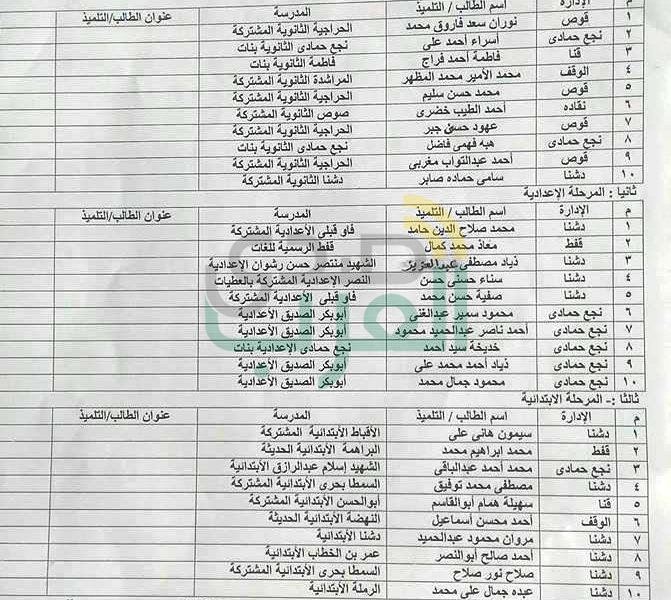 م الإدارة اسم الطالب / التلميذ المدرسة عنوان الطالب/التلميذ
١ قوص نوران سعد فاروق محمد الحراجية الثانوية المشتركة
٢ نجع حمادى أسراء أحمد على نجع حمادى الثانوية بنات
٣ قنا فاطمة أحمد فراج فاطمة الثانوية بنات
٤ الوقف محمد الأمير محمد المظهر المراشدة الثانوية المشتركة
٥ قوص محمد حسن سليم الحراجية الثانوية المشتركة
٦ نقاده أحمد الطيب خضرى صوص الثانوية المشتركة
٧ قوص عهود حسنى جبر الحراجية الثانوية المشتركة
٨ نجع حمادى هبه فهمى فاضل نجع حمادى الثانوية بنات
٩ قوص أحمد عبدالتواب مغربى الحراجية الثانوية المشتركة
١٠ دشنا سامى حماده صابر دشنا الثانوية المشتركة
ثانيا : المرحلة الإعدادية
م الإدارة اسم الطالب / التلميذ المدرسة عنوان الطالب/التلميذ
١ دشنا محمد صلاح الدين حامد فاو قبلى الأعدادية المشتركة
٢ قفط معاذ محمد كمال قفط الرسمية للغات
٣ دشنا ذياد مصطفى عبدالعزيز الشهيد منتصر حسن رشوان الإعدادية
٤ دشنا سناء حسنى حسن النصر الإعدادية المشتركة بالعطيات
٥ دشنا صفية حسن محمد فاو قبلى الأعدادية المشتركة
٦ نجع حمادى محمود سمير عبدالغنى أبوبكر الصديق الأعدادية
٧ نجع حمادى أحمد ناصر عبدالحميد محمود أبوبكر الصديق الأعدادية
٨ نجع حمادى خديخة سيد أحمد نجع حمادى الإعدادية بنات
٩ نجع حمادى ذياد أحمد محمد على أبوبكر الصديق الأعدادية
١٠ نجع حمادى محمود جمال محمد أبوبكر الصديق الأعدادية
ثالثا :- المرحلة الابتدائية
م الإدارة اسم الطالب / التلميذ المدرسة عنوان الطالب/التلميذ
١ دشنا سيمون هانى على الأقباط الأبتدائية المشتركة
٢ قفط محمد إبراهيم محمد البراهمة الأبتدائية الحديثة
٣ نجع حمادى محمد أحمد عبدالباقى الشهيد إسلام عبدالرازق الأبتدائية
٤ دشنا مصطفى محمد توفيق السمطا بحرى الأبتدائية المشتركة
٥ قنا سهيلة همام أبوالقاسم أبوالحسن الأبتدائية المشتركة
٦ الوقف أحمد محسن أسماعيل النهضة الأبتدائية الحديثة
٧ دشنا مروان محمود عبدالحميد دشنا الأبتدائية
٨ دشنا أحمد صالح أبوالنصر عمر بن الخطاب الأبتدائية
٩ دشنا صلاح نور صلاح السمطا بحرى الأبتدائية المشتركة
١٠ دشنا عبده جمال على محمد الرملة الأبتدائية